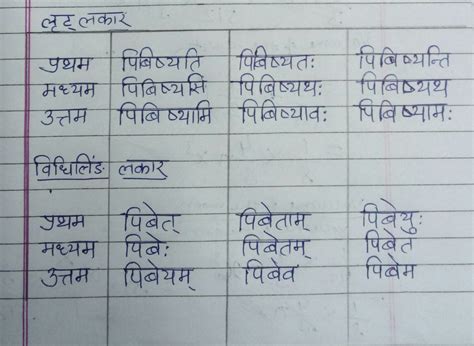 लृट् लकार
प्रथम पिबिष्यति पिबिष्यतः पिबिष्यन्ति
मध्यम पिबिष्यसि पिबिष्यथः पिबिष्यथ
उत्तम पिबिष्यामि पिबिष्यावः पिबिष्यामः
विधिलिंङ लकार
प्रथम पिबेत् पिबेताम् पिबेयुः
मध्यम पिबेः पिबेतम् पिबेत
उत्तम पिबेयम् पिबेव पिबेम